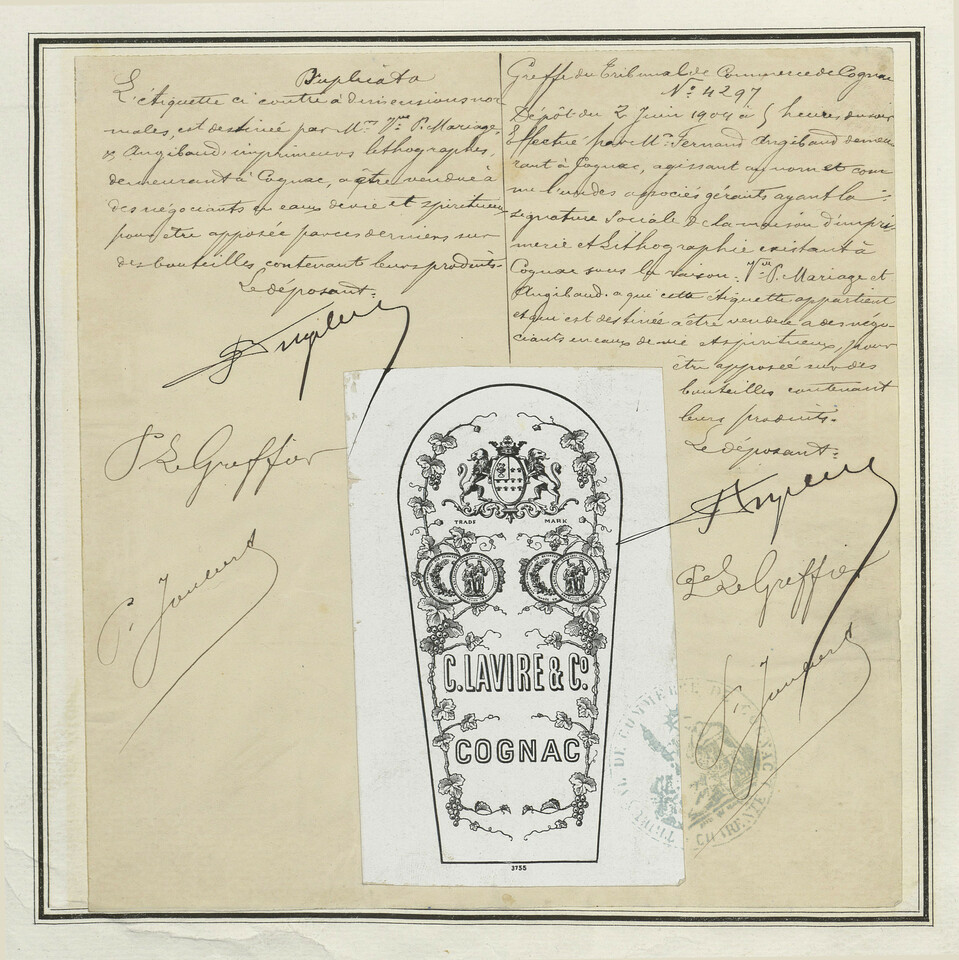 Duplicata
L'étiquette ci contre à dimensions nor
males, est destinée par Mrs Vve P. Mariage
& Angibaud, imprimeurs lithographes,
demeurant à Cognac, a être vendue à
des négociants en eaux de vie et spiritueux
pour être apposée par ces derniers sur
des bouteilles contenant leurs produits.
Le déposant:
Angibaud
P. Le Greffier
P. Jaubert
Greffe du Tribunal de Commerce de Cognac
No. 4297
Dépôt du 2 Juin 1904 à 5 heures du soir
Effectué par Mr. Fernand Angibaud demeu
rant à Cognac, agissant au nom et com
me l'un des associés gérants ayant la
signature Sociale de la maison d'impri
merie et Lithographie existant à
Cognac sous la raison: Vve P. Mariage et
Angibaud. a qui cette étiquette appartient
et qui est destinée a être vendue a des négo-
ciants en eaux de vie et spiritueux, pour
être apposée sur des
bouteilles contenant
leurs produits.
Le déposant:
Angibaud
Le Greffier
P. Jaubert
TRADE MARK
C. LAVIRE & Co.
COGNAC
3755
TRIBUNAL DE COMMERCE DE COGNAC
CHARENTE